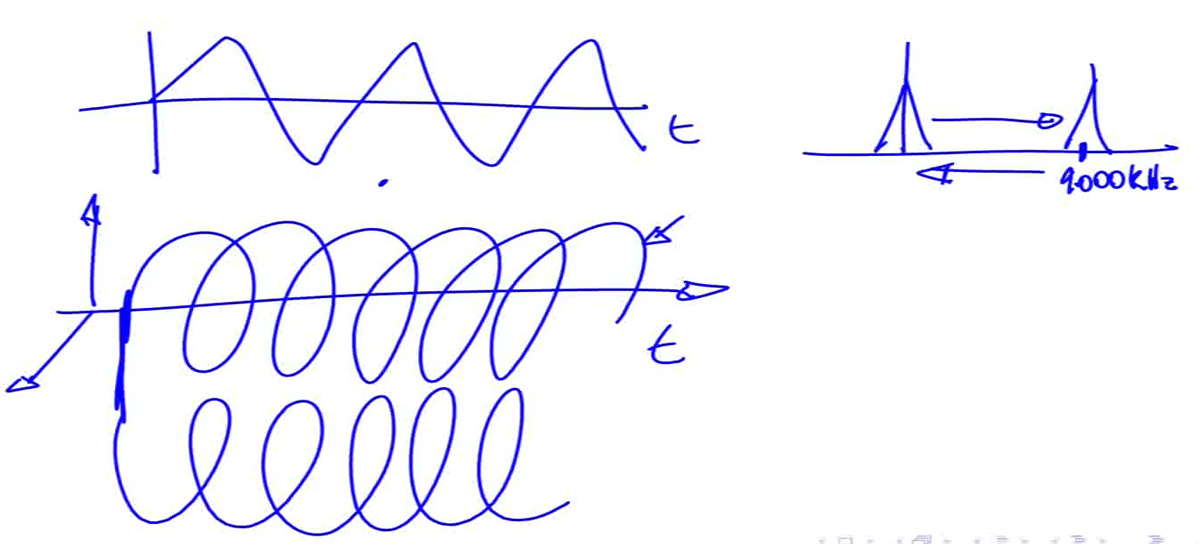 t
9000KHz
t